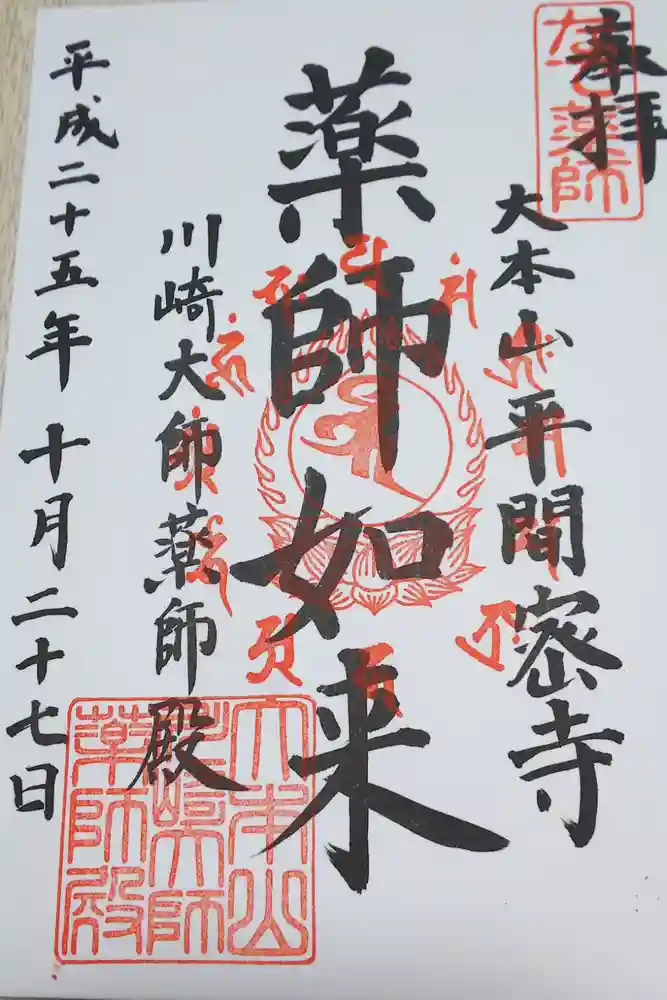 奉拝
なで薬師
大本山平間密寺
薬師如来
川崎大師薬師殿
平成二十五年十月二十七日
大本山
川崎大師
薬師殿